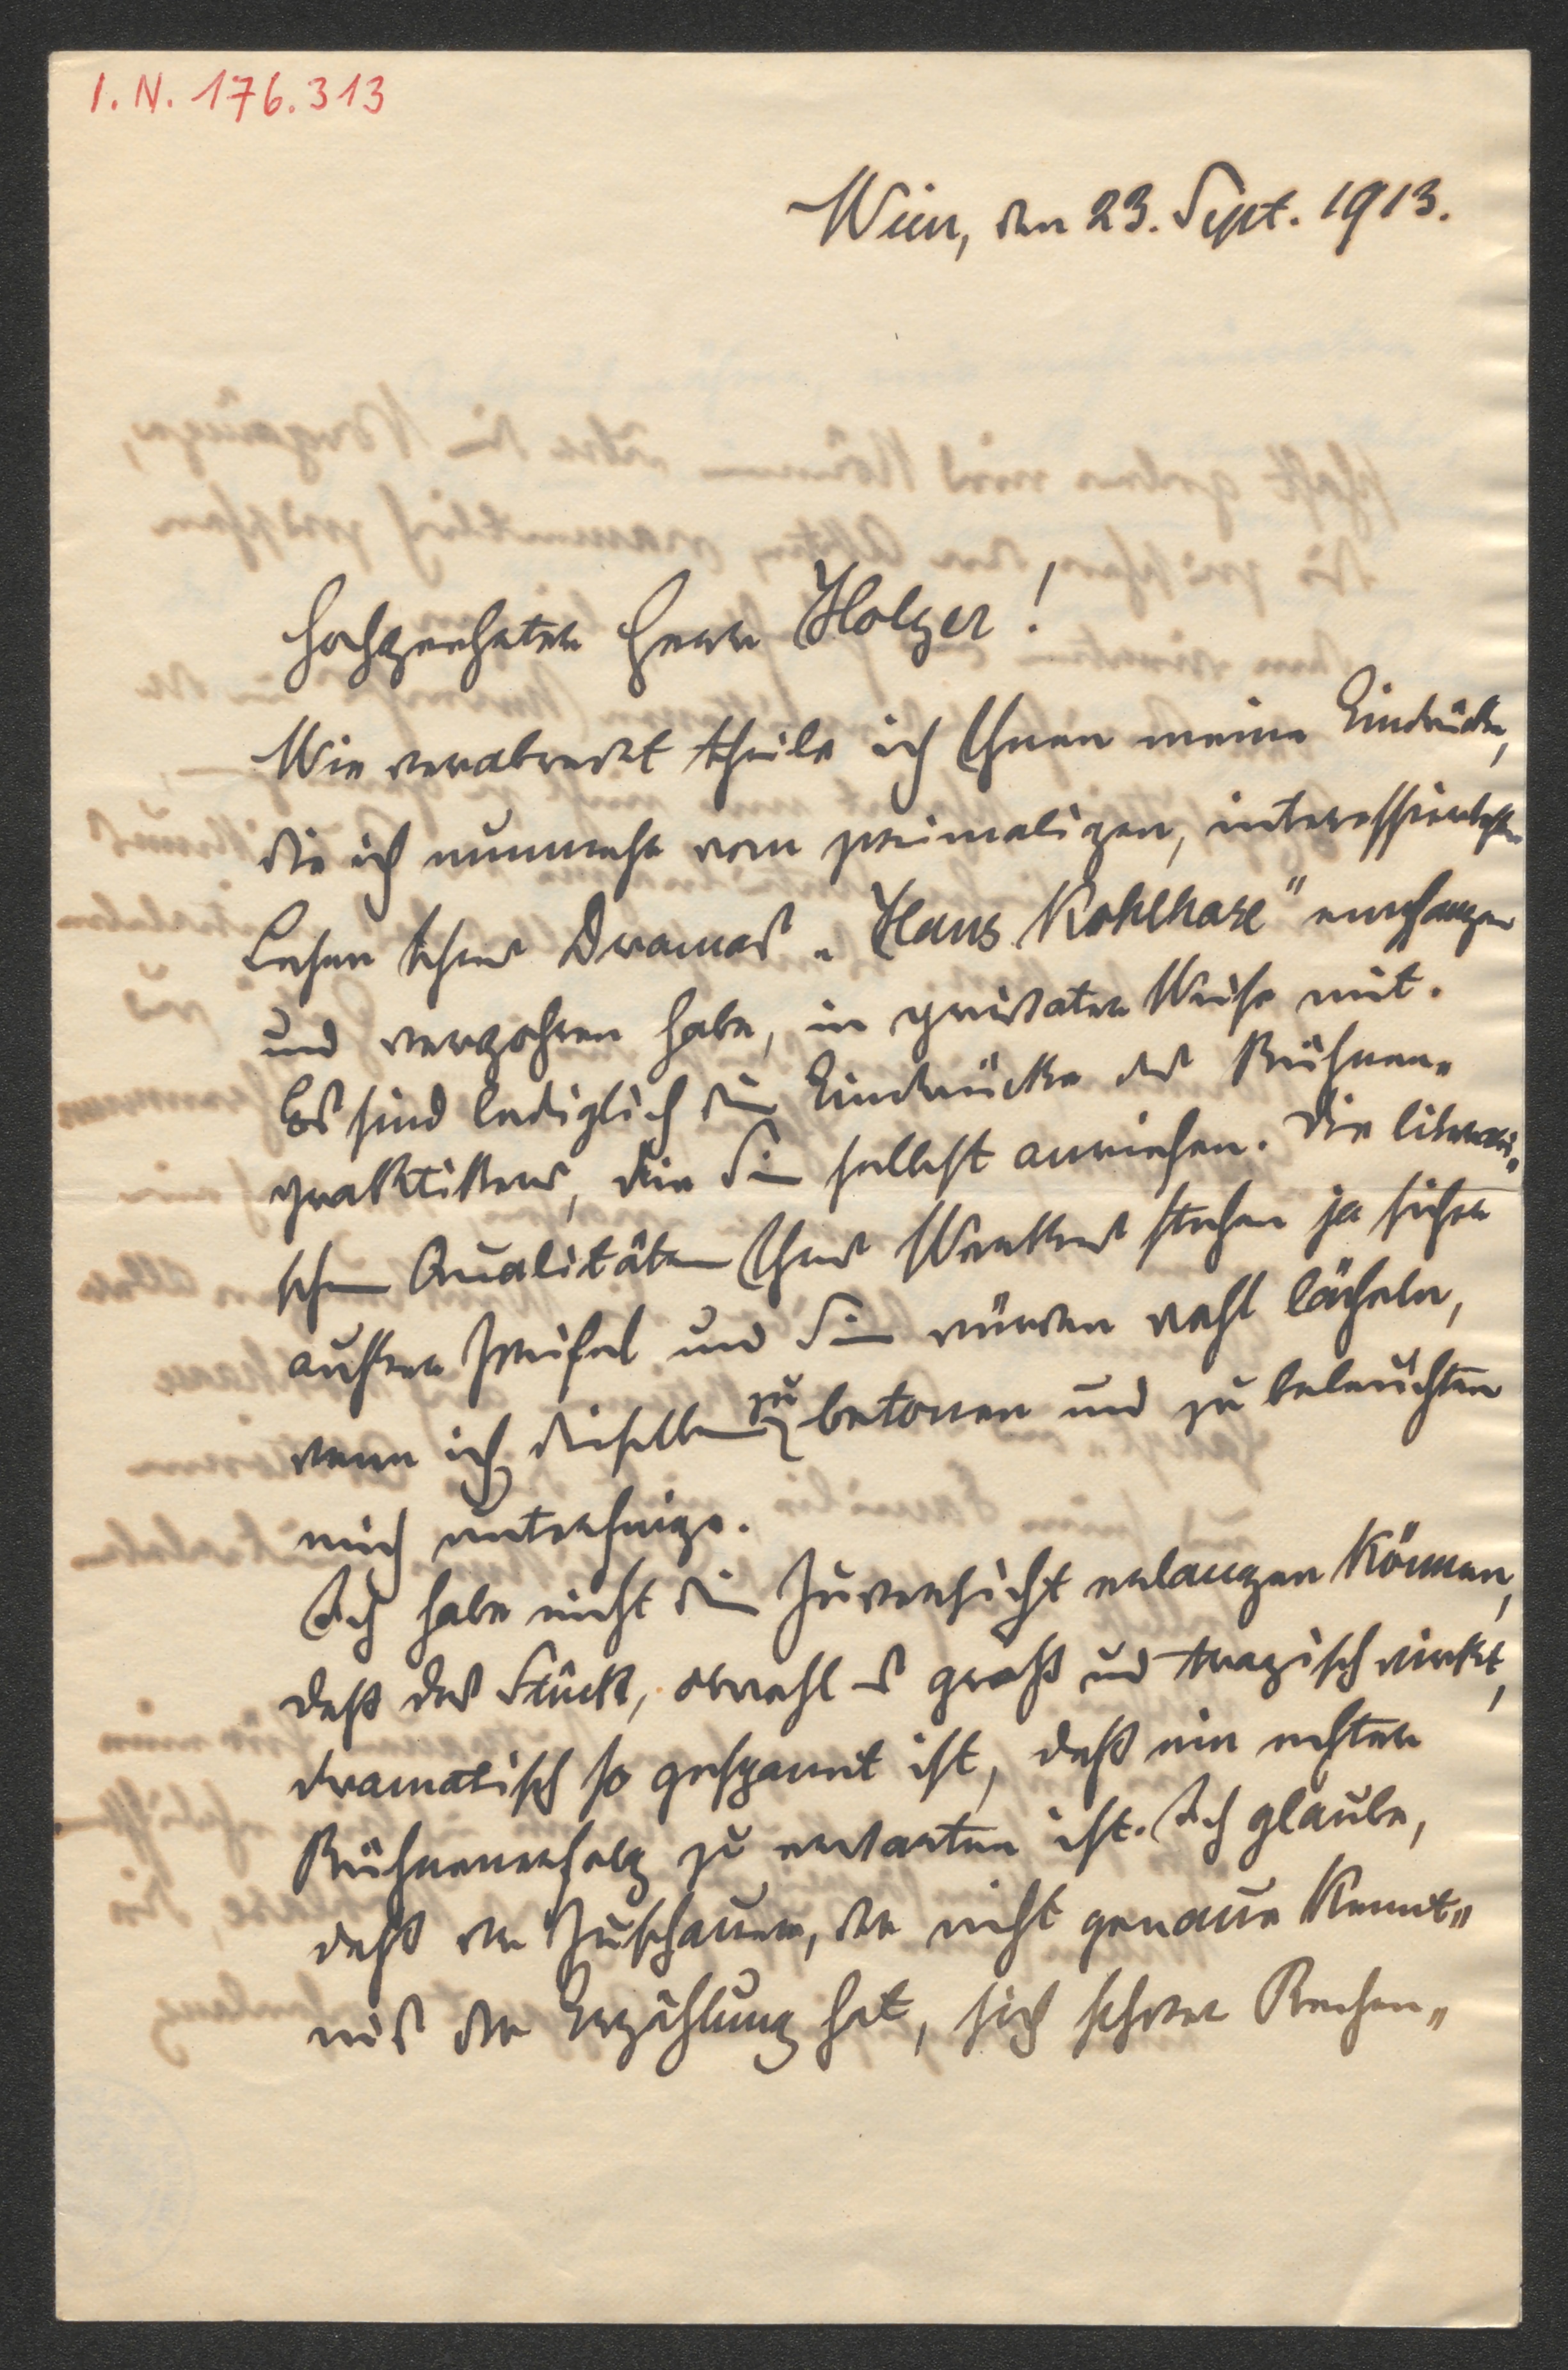 I. N. 176.313
Wien, den 23. Sept. 1913.
Hochgeehrter Herr Holzer!
Wie verabredet theile ich Ihnen meine Eindrücke,
die ich nunmehr vom zweimaligen, interessiertesten
Lesen Ihres Dramas „Hans Kohlhase" empfangen
und vergohren habe, in privater Weise mit.
Es sind lediglich die Eindrücke des Bühnen-
praktikers, die Sie selbst anriefen. Die literari-
schen Qualitäten Ihres Werkes stehen ja sicher
außer Zweifel und Sie würden wohl lächeln,
wenn ich dieselben zu betonen und zu beleuchten
mich unterfinge.
Ich habe nicht die Zuversicht erlangen können,
daß das Stück, obwohl es groß und tragisch wirkt,
dramatisch so gespannt ist, daß ein echter
Bühnenerfolg zu erwarten ist. Ich glaube,
daß der Zuschauer, der nicht genaue Kennt-
nis der Erzählung hat, sich schwer Rechen-